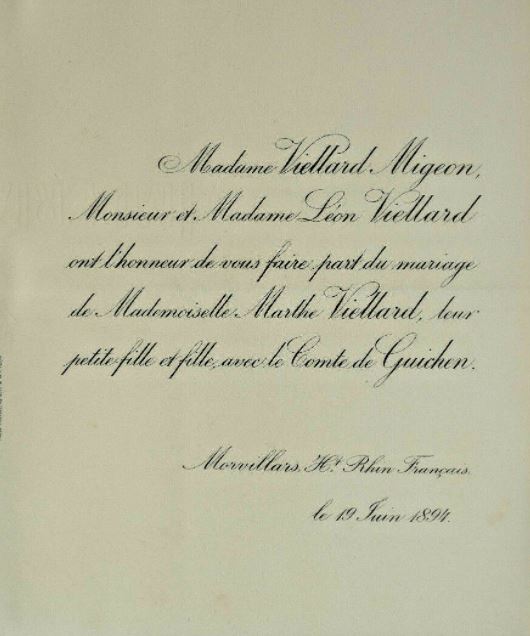 Madame Viellard Migeon,
Monsieur et Madame Léon Viellard
ont l'honneur de vous faire part du mariage
de Mademoiselle Marthe Viellard, leur
petite fille et fille, avec le Comte de Guichen.
Morvillars, Ht Rhin Français.
le 19 Juin 1894.